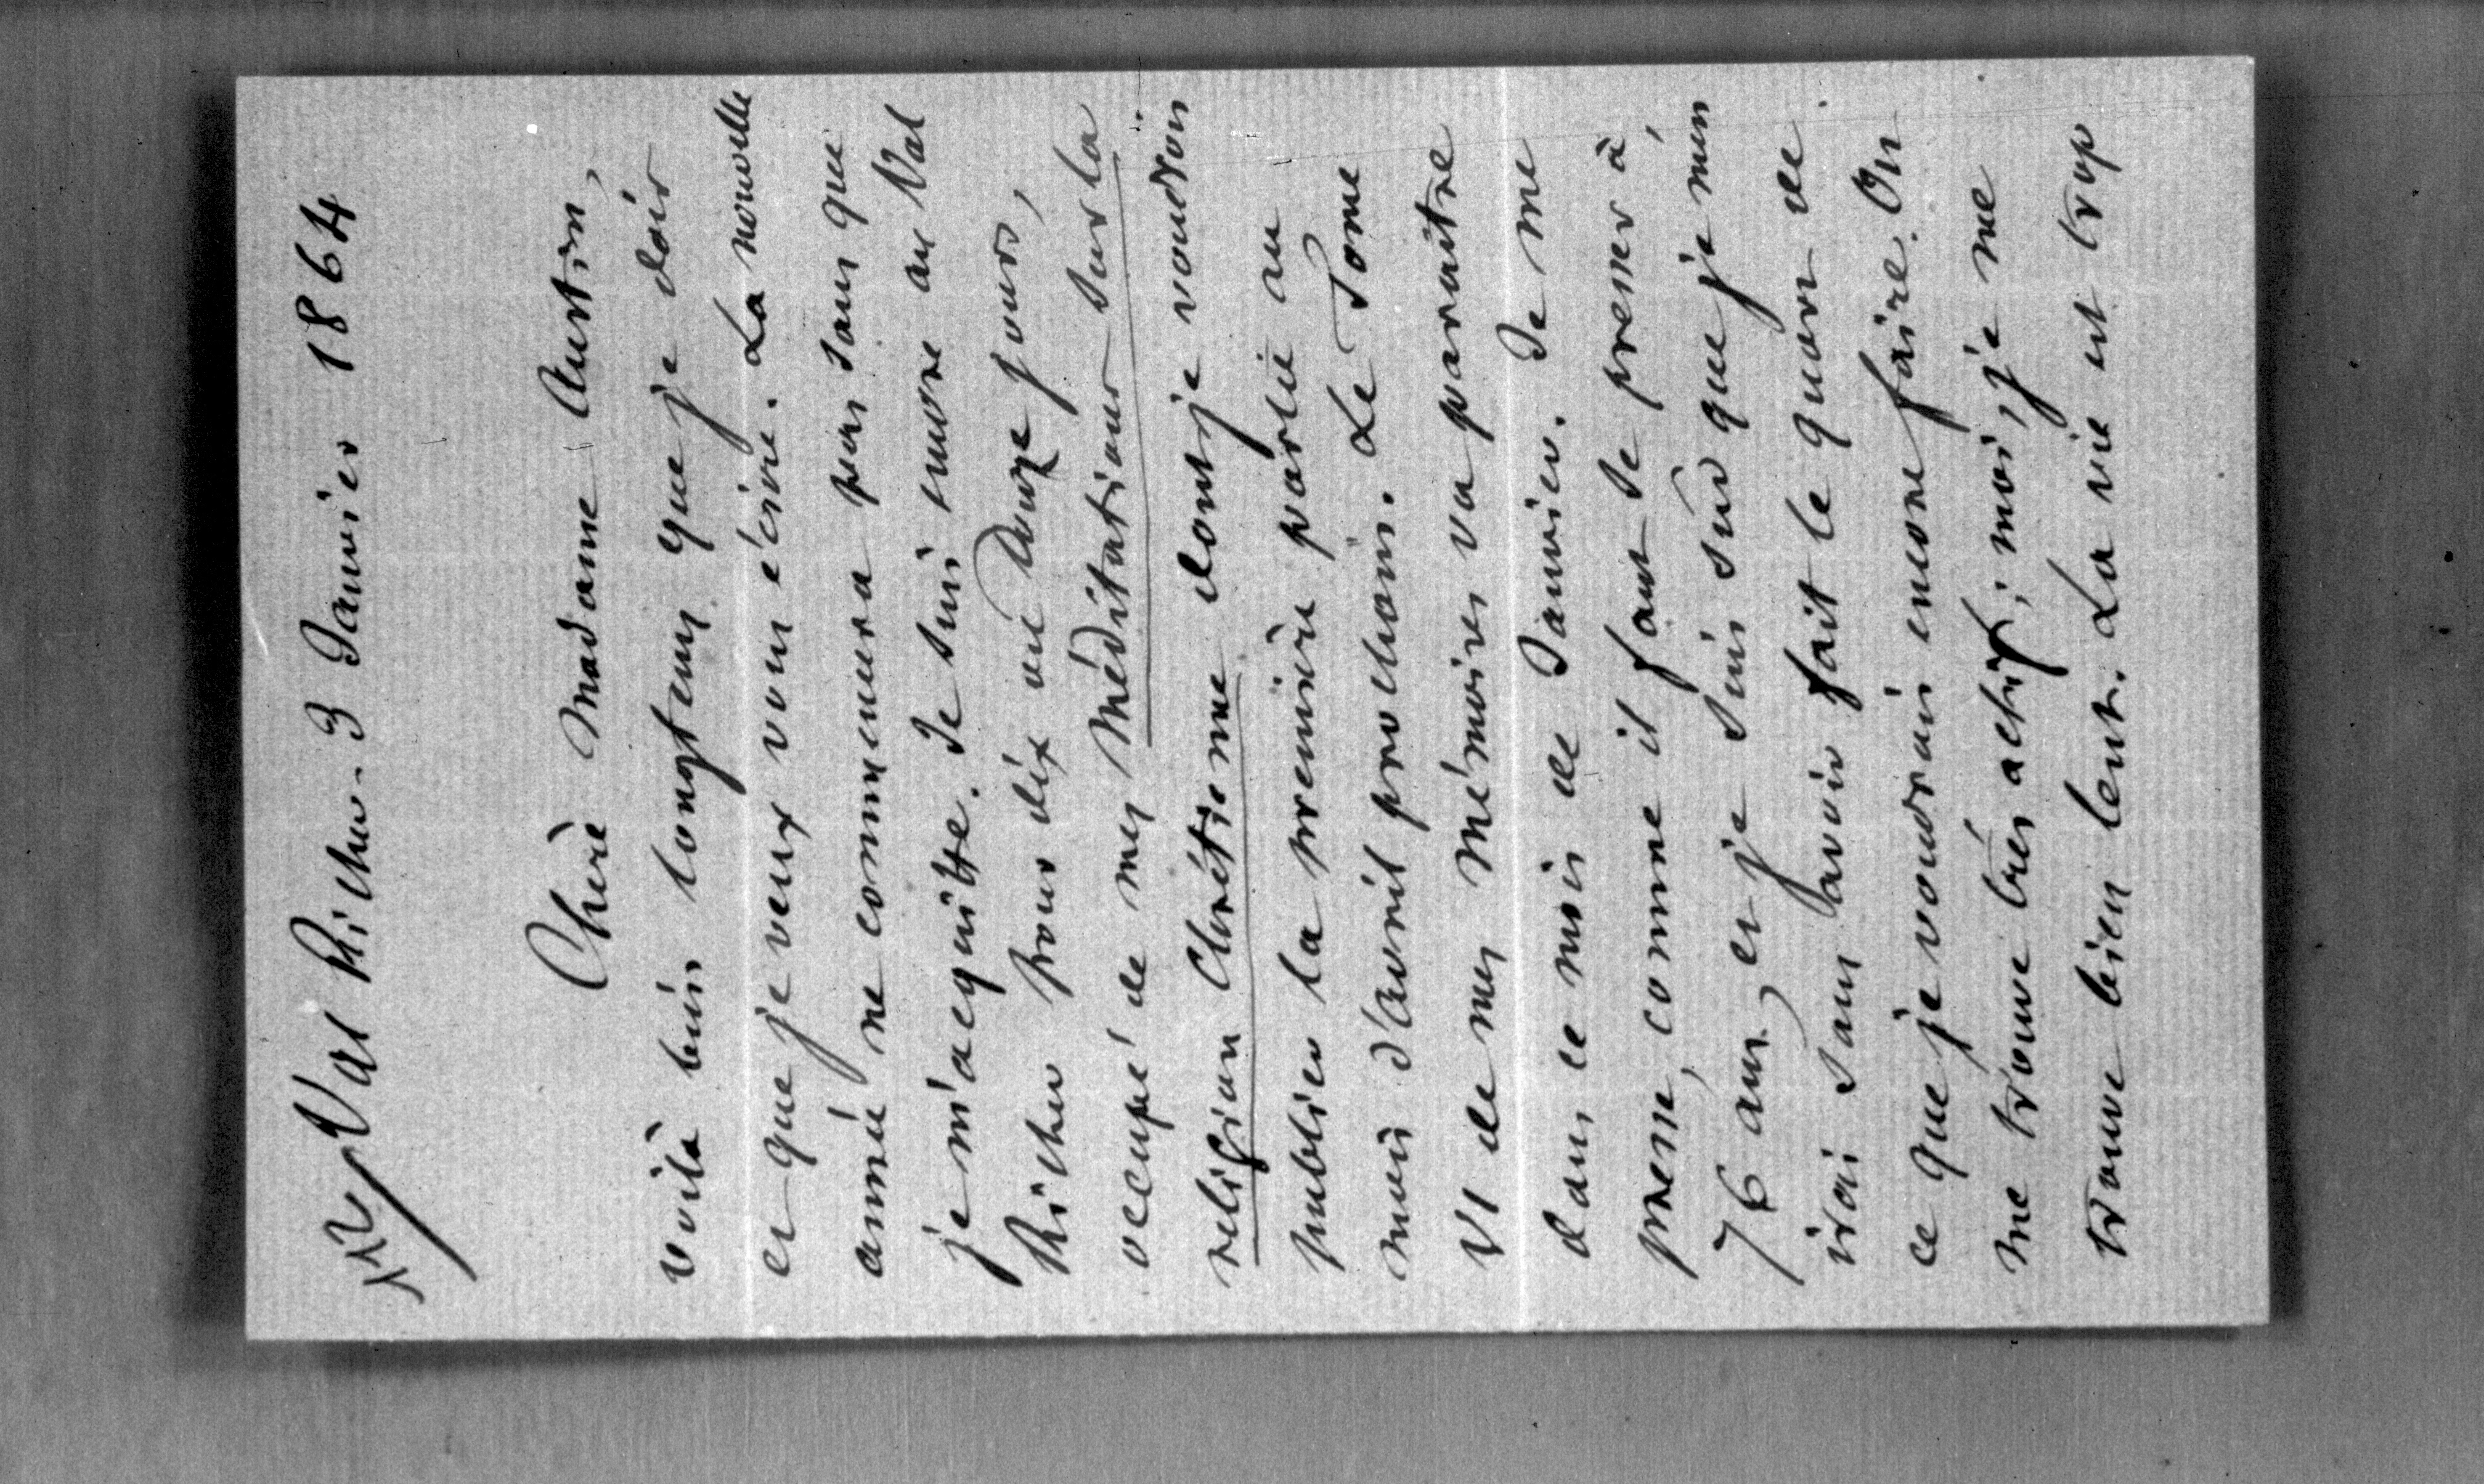 12/ Val Richer - 3 Janvier 1864
Chère Madame Austin,
voilà bien longtems que je dois
et que je veux vous écrire. La nouvelle
année ne commencera pas sans que
je m'acquitte. Je suis encore au Val
Richer pour dix ou douze jours,
occupé de mes Méditations sur la
religion Chrétienne dont je voudrois
publier la première partie au
mois d'avril prochain. Le Tome
VI de mes Mémoires va paraître
dans ce mois de Janvier. Je me
presse, comme il faut se presser à
76 ans, et je suis sûr que je m'en
irai sans avoir fait le quart de
ce que je voudrais encore faire. On
me trouve très actif ; moi, je me
trouve bien lent. La vie est trop